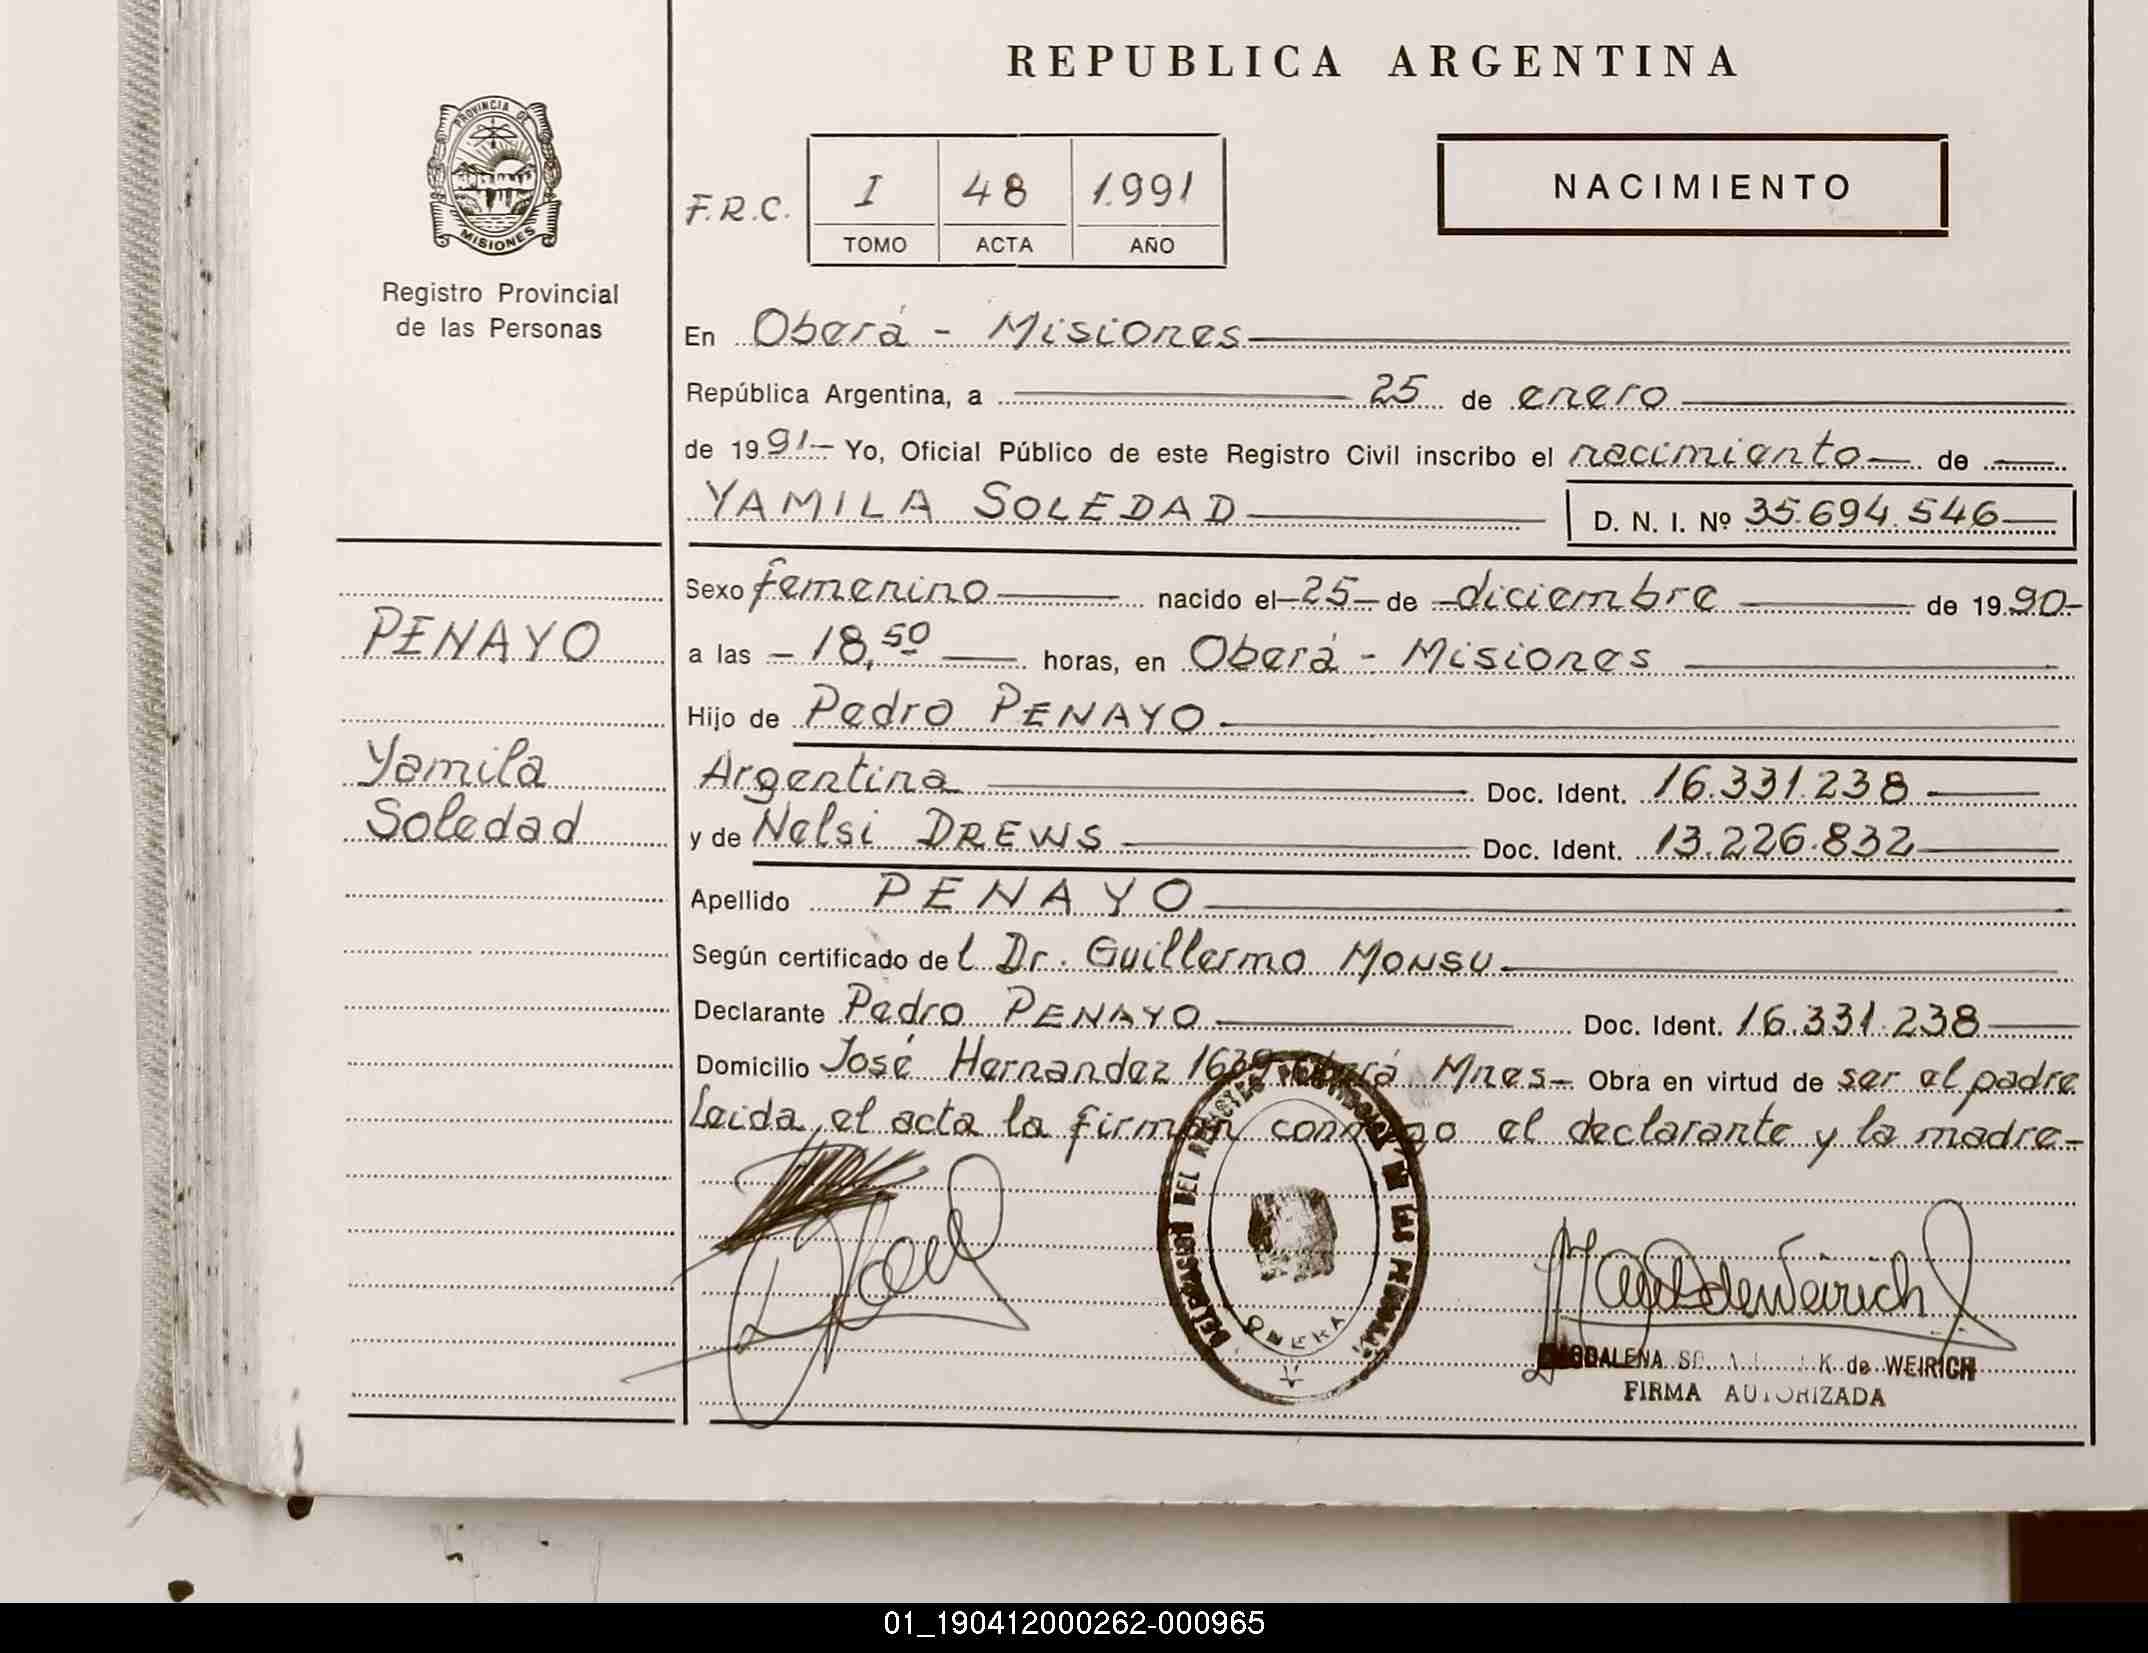 REPUBLICA ARGENTINA
PROVINCIA DE
MISIONES
Registro Provincial
de las Personas
F.R.C.
I 48 1991
TOMO ACTA AÑO
NACIMIENTO
En Oberá - Misiones
República Argentina, a 25 de enero
de 1991- Yo, Oficial Público de este Registro Civil inscribo el nacimiento de
YAMILA SOLEDAD D. N. I. Nº 35.694.546
PENAYO
Yamila
Soledad
Sexo femenino nacido el 25 de diciembre de 1990-
a las - 18,50 horas, en Oberá - Misiones
Hijo de Pedro PENAYO
Argentina Doc. Ident. 16.331.238
y de Nelsi DREWS Doc. Ident. 13.226.832
Apellido PENAYO
Según certificado del Dr. Guillermo MONSU
Declarante Pedro PENAYO Doc. Ident. 16.331.238
Domicilio José Hernandez Oberá Mnes- Obra en virtud de ser el padre
Leida el acta la firman conmigo el declarante y la madre-
DELEGACION DEL REGISTRO DE LAS PERSONAS
OBERA
MAGDALENA K. de WEIRICH
FIRMA AUTORIZADA
01_190412000262-000965